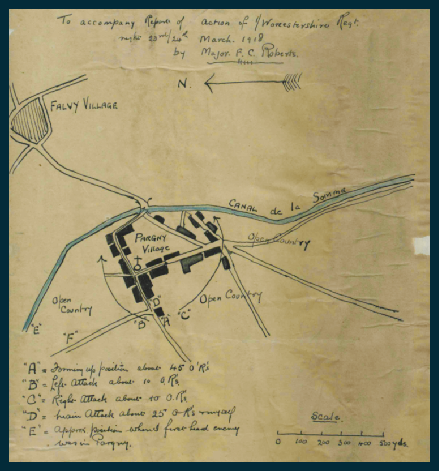 To accompany Report of action of 1/Worcestershire Regt.
night 23rd/24th March. 1918
by Major F. C. Roberts.
N.
FALVY VILLAGE
CANAL de la Somme
PARGNY
Village
Open Country
Open
Country
Open Country
"E"
"F"
"D"
"B"
"A"
"C"
"A" = Forming up position about 45 O'R's
"B" = Left Attack about 10 O.R's
"C" = Right Attack about 10 O.R's
"D" = Main Attack about 25 O.R's & myself
"E" = Approx position where I first heard enemy
was in Pargny.
Scale.
0 100 200 300 400 500 yds.